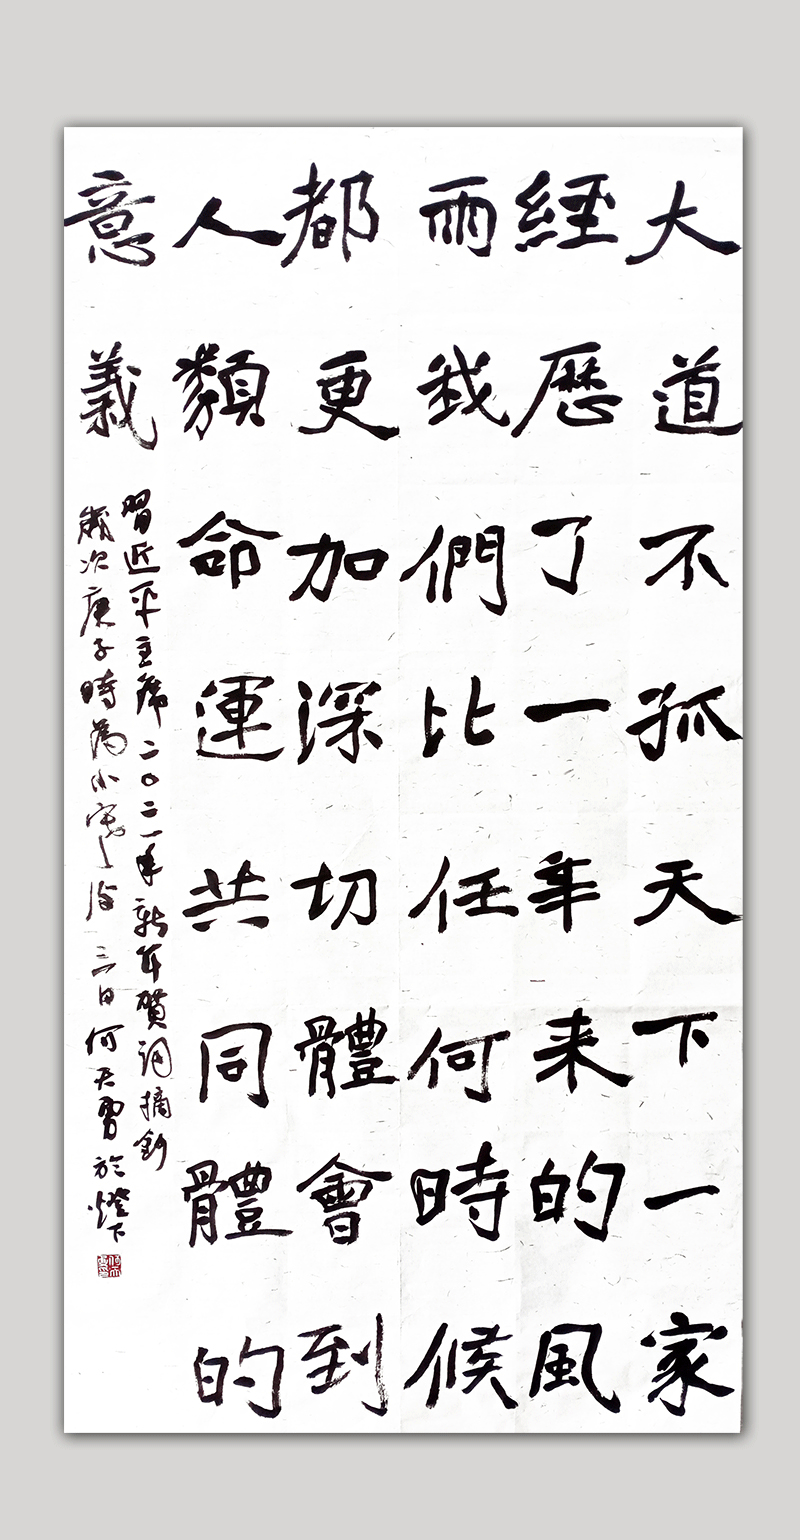 大道不孤天下一家
經歷了一年来的風
雨我們比任何時候
都更加深切體會到
人類命運共同體的
意義
習近平主席二〇二一年新年賀詞摘鈔
歲次庚子時為小寒後三日何天勇於燈下